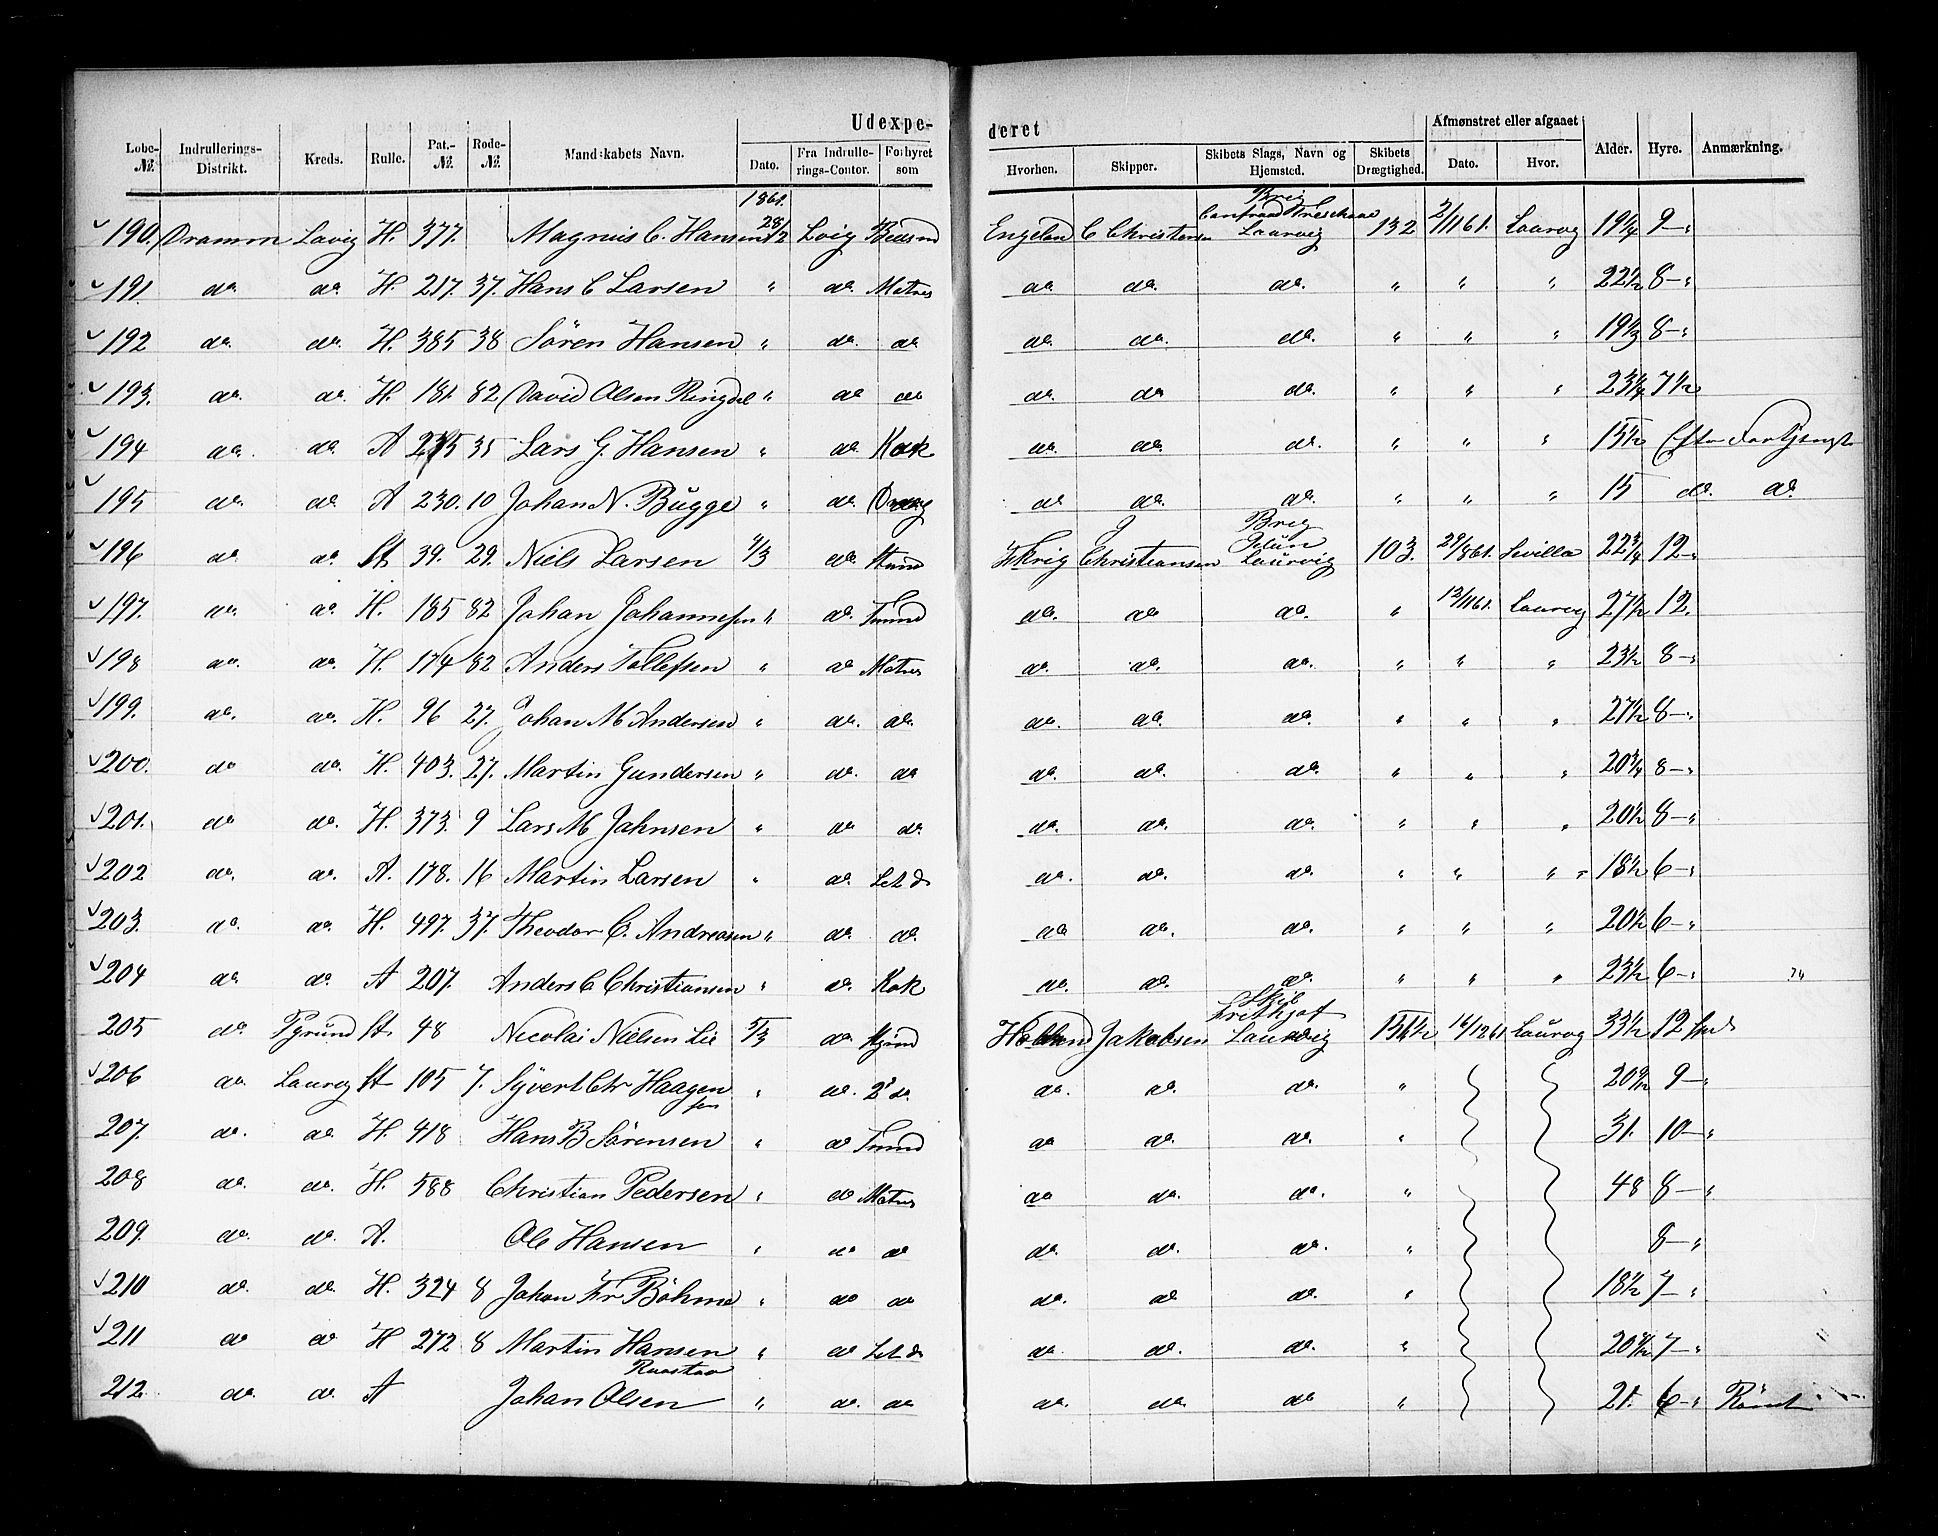 Udexpe- deret
Lobe-№. Indrullerings-Distrikt. Kreds. Rulle. Pat.-№. Rode-№. Mandskabets Navn. Dato. Fra Indrullerings-Contor. Forhyret som Hvorhen. Skipper. Skibets Slags, Navn og Hjemsted. Skibets Drægtighed. Afmønstret eller afgaaet Dato. Hvor. Alder. Hyre. Anmærkning.
1861.
190. Dramm Lavig H. 377. Magnus C. Hansen 28/2 Lvig Engeland C Christensen Brig Laurvig 132 2/11 61. Laurvg 19 1/4 9-"
191 do. do. H. 217. 37. Hans C Larsen " do. Matros do. do. do. " " " 22 1/2 8-"
192 do. do. H. 385 38 Søren Hansen " do. do do. do. do. " " " 19 1/3 8-"
193. do. do. H. 181 82 David Olsen Ringdal " do do do. do do. " " " 23 1/4 7 1/2
194 do. do. A 35 Lars G. Hansen " do. Kok do. do. do. " " " 15 1/2 Efter Fortjeneste
195 do. do. A 230. 10 Johan N. Bugge " do. do do. do. " " " 15 do. do.
196 do. do. St 39. 29. Niels Larsen 4/3 do. Stmd Christiansen Brig Laurvig 103. 29/8 61. Sevilla 22 3/4 12-
197. do. do. H. 185 82 Johan Johannesen " do. Tmmd do. do do. " 12/11 61. Laurvg 27 1/2 12.
198 do. do. H. 174 82 Anders Tollefsen " do Matros do. do. do. " " " 23 1/2 8-"
199. do. do. H. 96 27. Johan M Andersen " do. do. do. do. do. " " " 27 1/2 8-"
200. do do. H. 403. 27. Martin Gundersen " do. do do. do. do. " " " 20 3/4 8-"
201. do do. H. 373. 9 Lars M Jahnsen " do do do. do. do. " " " 20 1/2 8-"
202 do. do. A. 178. 16 Martin Larsen " do. Let d. do. do. do. " " " 18 1/2 6-"
203. do. do. H. 497. 37. Theodor C. Andreasen " do. do. do do. do. " " " 20 1/2 6-"
204 do. do. A 207. Anders C Christiansen " do. Kok do. do. do. " " " 23 1/2 6-"
205 do. Pgrund St. 48 Nicolai Nielsen Lie 5/3 do Holland Jakobsen Skib Frithjof Laurvig 151 1/2 14/12 61 Laurvg 33 1/2 12
206 do. Laurvg St 105 7. Syvert Chr Haagensen " do. 2d do. do. do. do. " 9-"
207. do. do. H. 418 Hans B Sørensen " do Tmmd do do. do. " 31. 10-"
208 do. do. H. 588 Christian Pedersen " do Matros do do. do. " 48 8-"
209. do. do. A. Ole Hansen " do do do. do. do. " 8-"
210 do. do. H. 324 8 Johan Fr Böhme " do do do. do do. " 18 1/2 7-"
211 do do H 272 8 Martin Hansen " do Let d. do. do. do. " 7-"
212. do. do. A Johan Olsen " do. do do. do. do " 21. 6-" Rømt